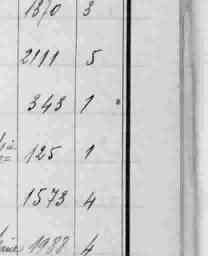 1370 3
2111 5
343 1
125 1
1573 4
1988 4